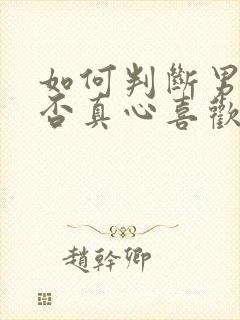 如何判斷男
否真心喜歡
趙幹卿